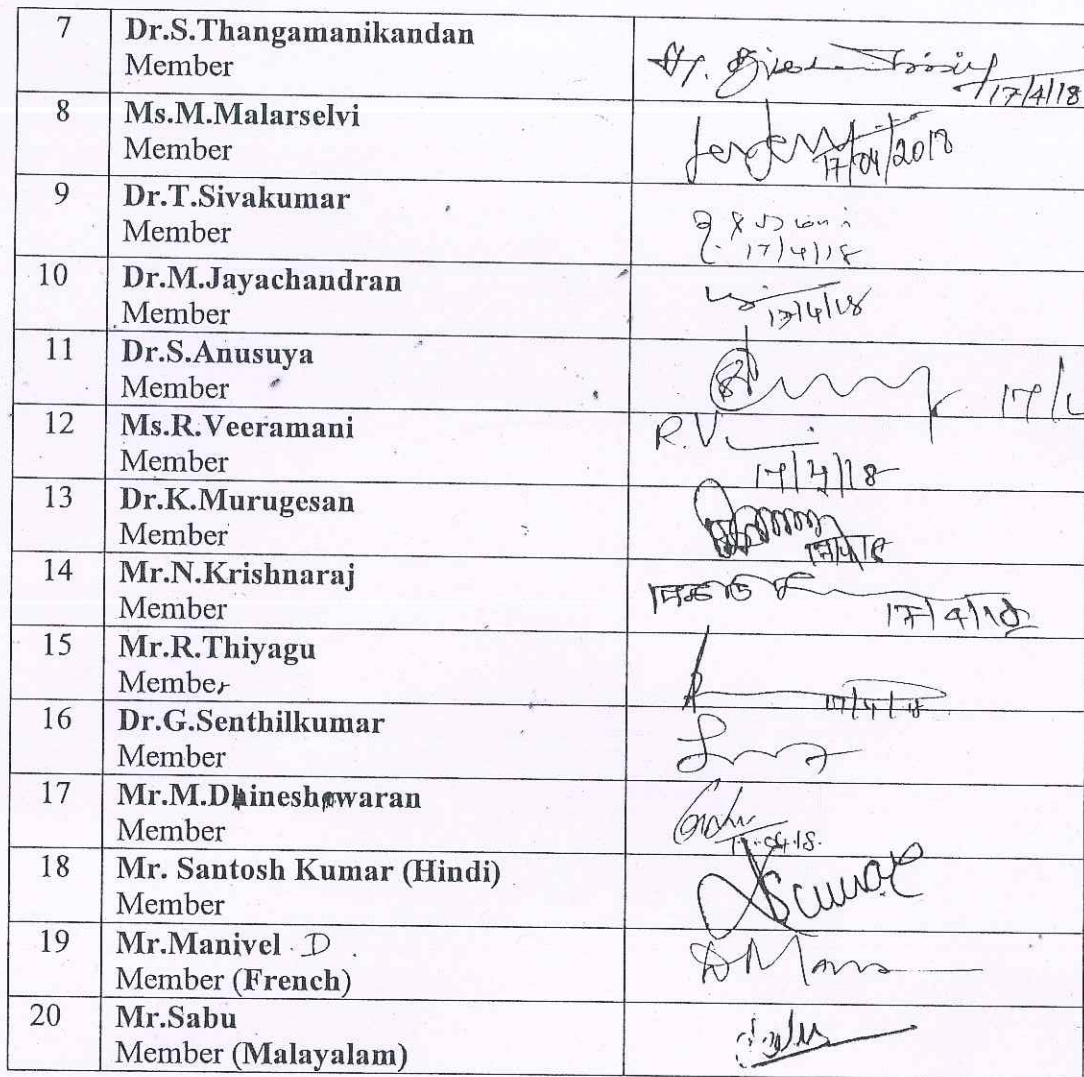 7 Dr.S.Thangamanikandan
Member
17/4/18
8 Ms.M.Malarselvi
Member
17/04/2018
9 Dr.T.Sivakumar
Member
17/4/18
10 Dr.M.Jayachandran
Member
17/4/18
11 Dr.S.Anusuya
Member
17/
12 Ms.R.Veeramani
Member
R.V
17/4/18
13 Dr.K.Murugesan
Member
17/4/18
14 Mr.N.Krishnaraj
Member
17/4/18
15 Mr.R.Thiyagu
Member
17/4/18
16 Dr.G.Senthilkumar
Member
17 Mr.M.Dhineshwaran
Member
18 Mr. Santosh Kumar (Hindi)
Member
19 Mr.Manivel D
Member (French)
20 Mr.Sabu
Member (Malayalam)